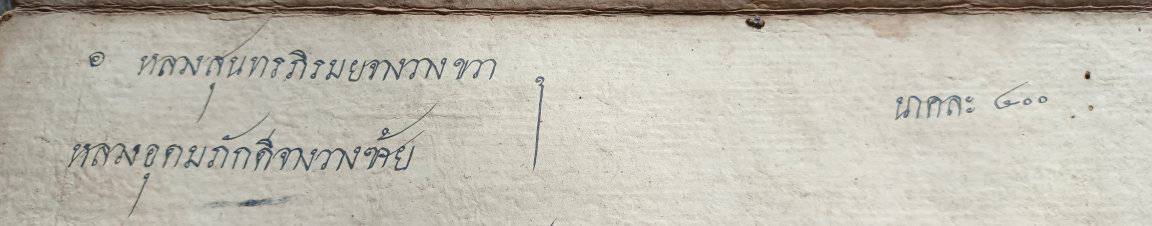 ๏ หลวงสุนทรภิรมยจางวางขวา
นาคละ ๔๐๐
หลวงอุดมภักดีจางวางซ้าย